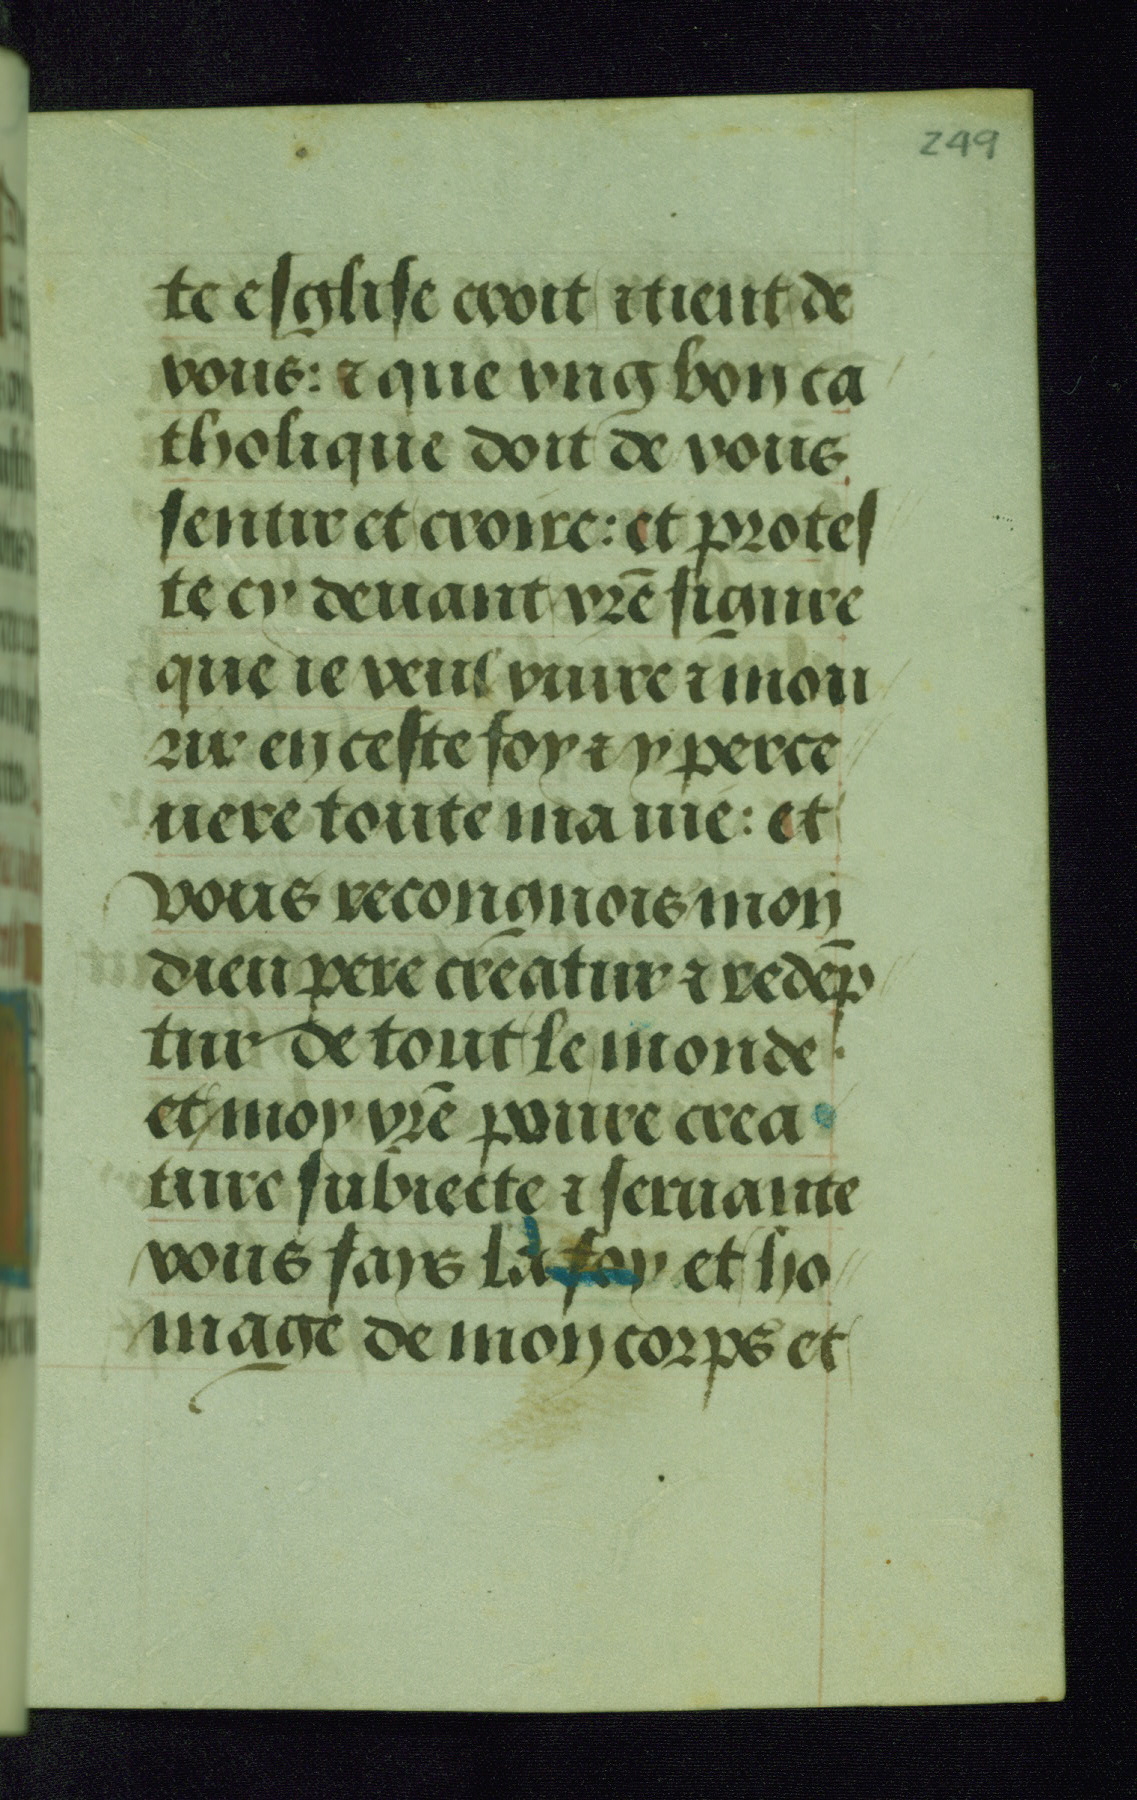 249
te esglise croit ⁊ tient de
vous: ⁊ que vng bon ca
tholique doit de vous
sentir et croire: et protes
te cy deuant vr̃e figure
que ie veul viure ⁊ mou
rir en ceste foy ⁊ y perce
uere toute ma uie: et
vous recongnois mon
dieu pere creatur ⁊ redẽp
tur de tout le monde
et moy vr̃e poure crea
ture subiecte ⁊ seruante
vous fays la foy et ho
mage de mon corps et